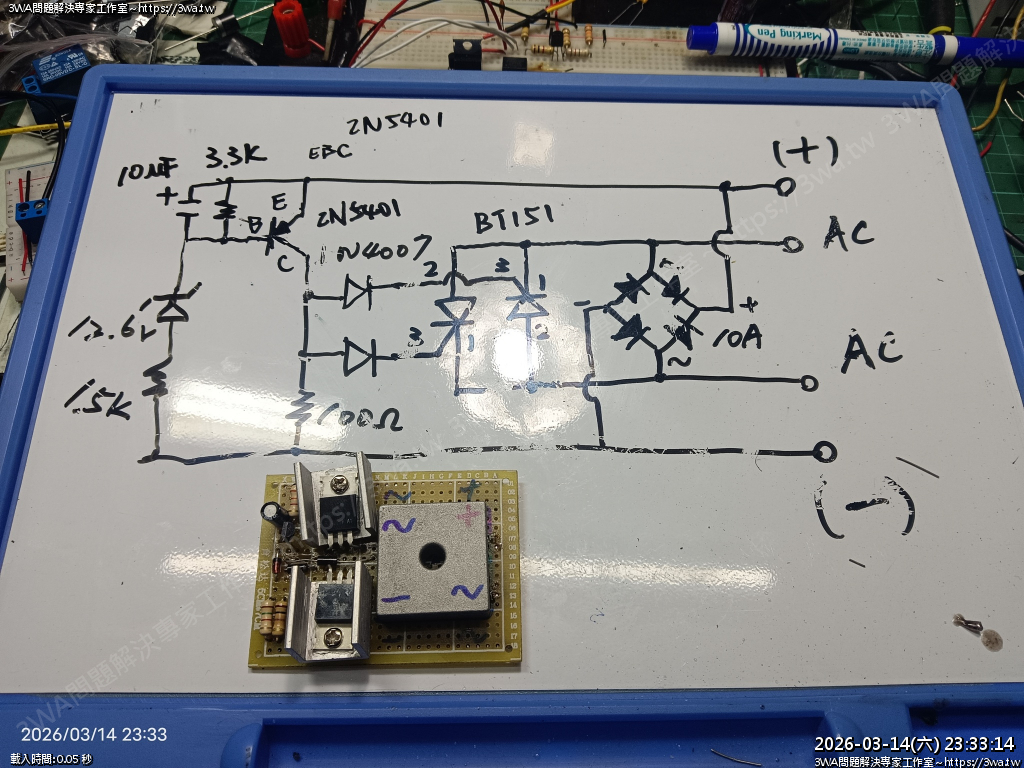 3WA問題解決專家工作室~https://3wa.tw
Marking Pen
2N5401
EBC
10uF
3.3K
+
E
B
2N5401
C
1N4007
BT151
(+)
AC
2
3
1
3
1
2
~
-
+
10A
~
12.6V
1.5K
100Ω
AC
(-)
2
+
2
+
1
2
2026/03/14 23:33
載入時間:0.05 秒
2026-03-14(六) 23:33:14
3WA問題解決專家工作室~https://3wa.tw